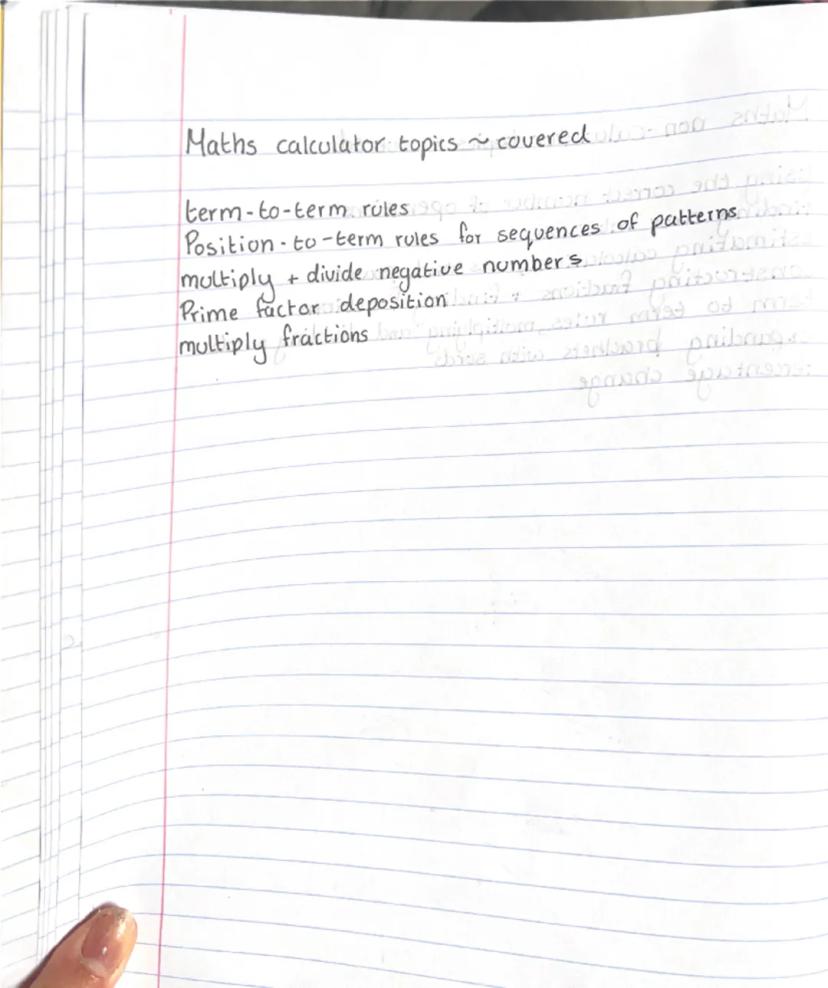 Maths calculator topics ~ covered
term-to-term rules
Position-to-term rules for sequences of patterns
multiply + divide negative numbers
Prime factor deposition
multiply fractions